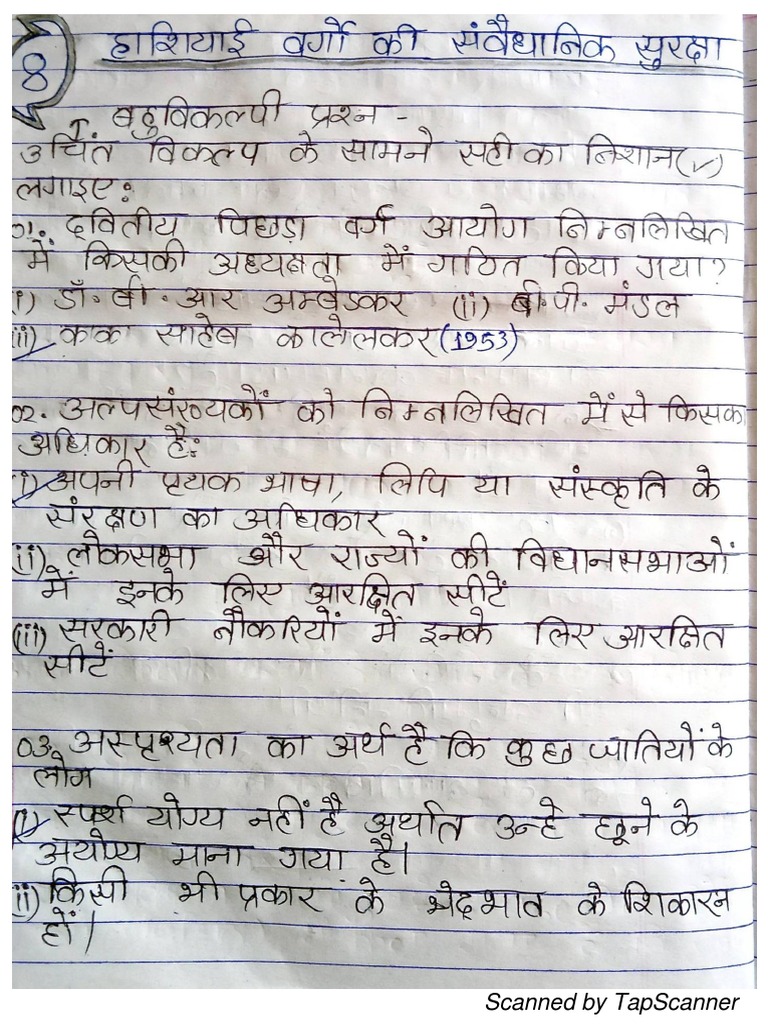 8
हाशियाई वर्गों की संवैधानिक सुरक्षा
I. बहुविकल्पी प्रश्न -
उचिंत विकल्प के सामने सही का निशान(✓)
लगाइए:
01. द्वितीय पिछड़ा वर्ग आयोग निम्नलिखित
में किसकी अध्यक्षता में गठित किया गया?
(i) डॉ. बी. आर अम्बेडकर (ii) बी.पी. मंडल
(iii) काका साहेब कालेलकर (1953)
02. अल्पसंख्यकों को निम्नलिखित में से किसका
अधिकार है:
(i) अपनी पृथक भाषा, लिपि या संस्कृति के
संरक्षण का अधिकार
(ii) लोकसभा और राज्यों की विधानसभाओं
में इनके लिए आरक्षित सीटें
(iii) सरकारी नौकरियों में इनके लिए आरक्षित
सीटें
03. अस्पृश्यता का अर्थ है कि कुछ जातियों के
लोग
(i) स्पर्श योग्य नहीं है अर्थात उन्हे छूने के
अयोग्य माना गया है।
(ii) किसी भी प्रकार के भेदभात के शिकार न
हों।
Scanned by TapScanner